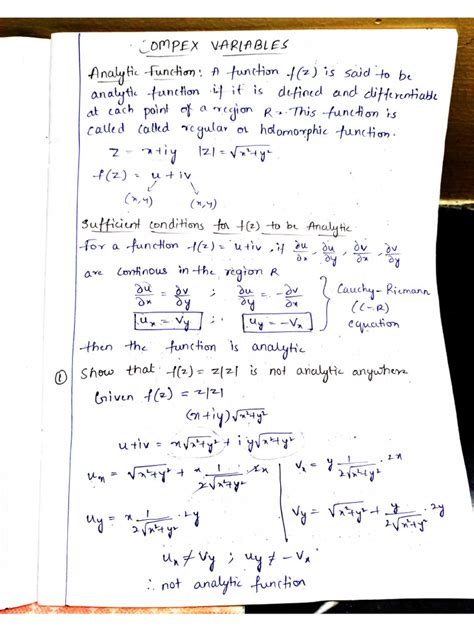 COMPEX VARIABLES
Analytic Function: A function f(z) is said to be
analytic function if it is defined and differentiable
at each point of a region R. This function is
called called regular or holomorphic function.
z = x+iy |z| = √x²+y²
f(z) = u + iv
(x,y) (x,y)
Sufficient conditions for f(z) to be Analytic
For a function f(z) = u+iv, if ∂u/∂x, ∂u/∂y, ∂v/∂x, ∂v/∂y
are continous in the region R
∂u/∂x = ∂v/∂y ; ∂u/∂y = -∂v/∂x } Cauchy-Riemann
(C-R)
u_x = v_y ; u_y = -v_x equation
then the function is analytic
① Show that f(z) = z|z| is not analytic anywhere
Given f(z) = z|z|
(x+iy)√x²+y²
u+iv = x√x²+y² + i y√x²+y²
u_x = √x²+y² + x 1/2√x²+y² · 2x | v_x = y 1/2√x²+y² · 2x
u_y = x 1/2√x²+y² · 2y | v_y = √x²+y² + y/2√x²+y² · 2y
u_x ≠ v_y ; u_y ≠ -v_x
∴ not analytic function